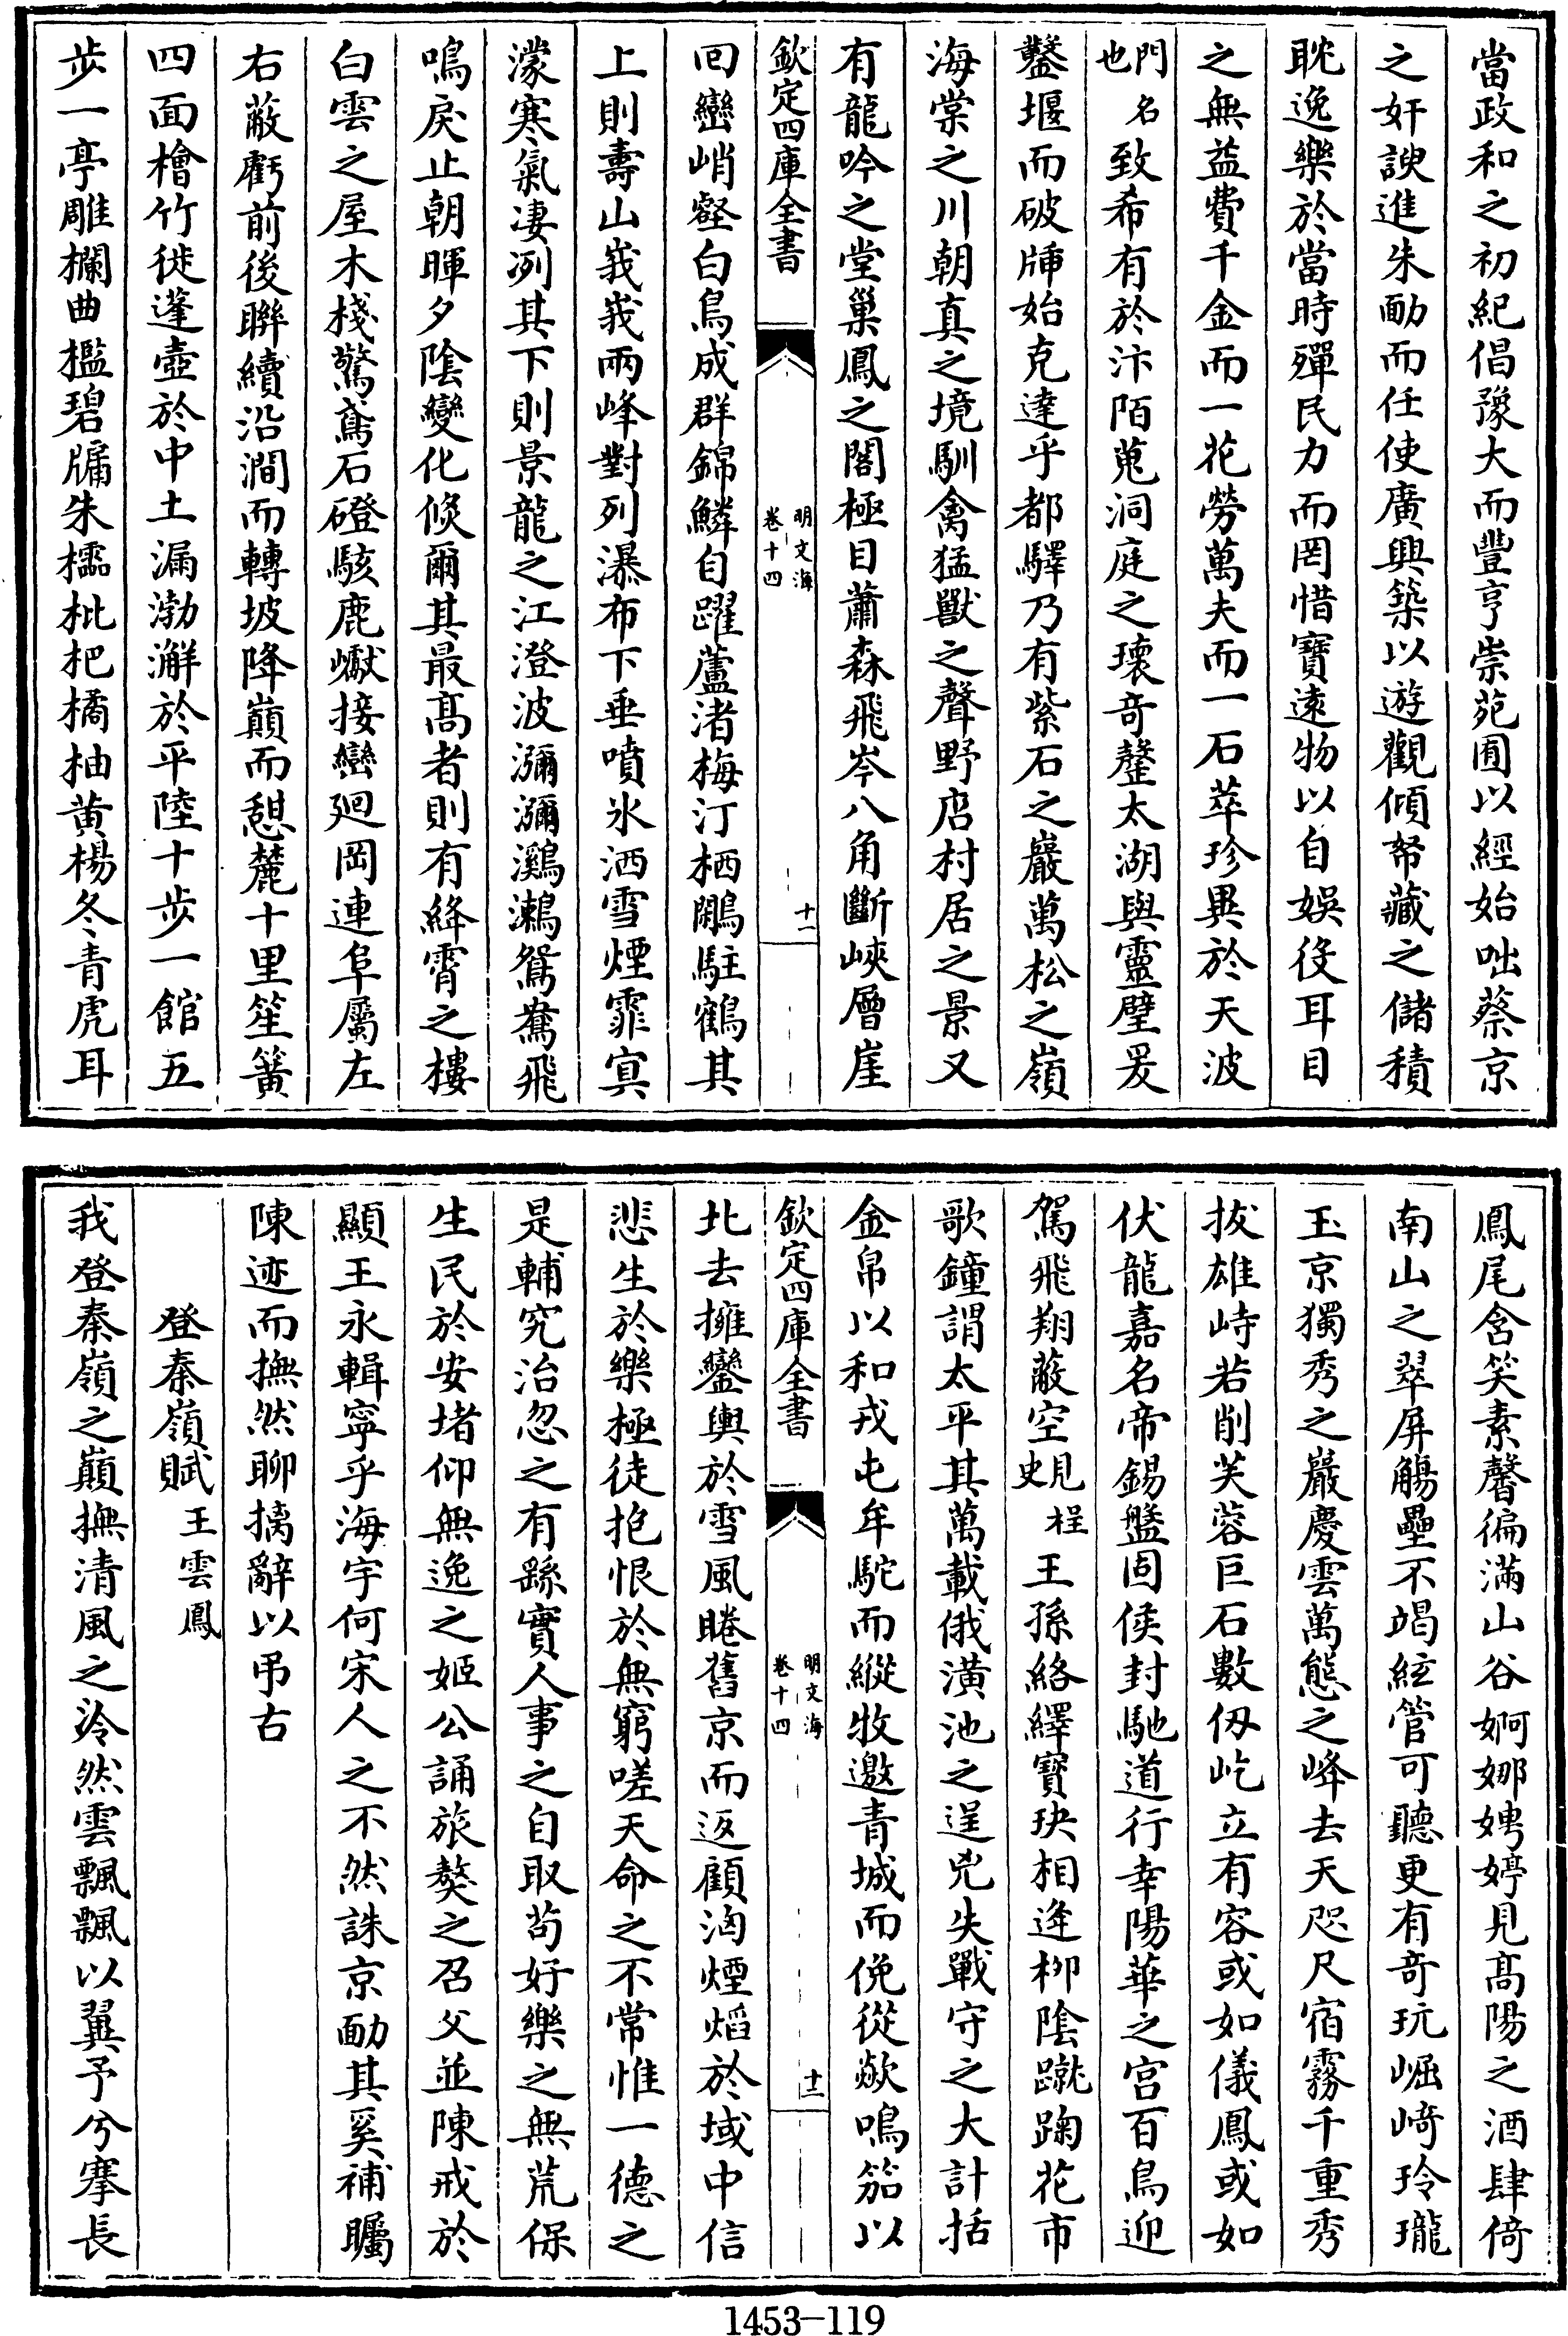 當政和之初紀倡豫大而豐亨崇苑囿以經始咄蔡京
之奸諛進朱勔而任使廣興築以遊觀傾帑藏之儲積
耽逸樂於當時殫民力而罔惜寳遠物以自娛役耳目
之無益費千金而一花勞萬夫而一石萃珍異於天波
門名也致希有於汴陌蒐洞庭之瓌奇鏧太湖與靈壁爰
鑿堰而破牐始克達乎都驛乃有紫石之巖萬松之嶺
海棠之川朝真之境馴禽猛獸之聲野店村居之景又
有龍吟之堂巢鳳之閣極目蕭森飛岑八角斷峽層崖
欽定四庫全書
明文海
卷十四
十一
回巒峭壑白鳥成群錦鱗自躍蘆渚梅汀栖鵰駐鶴其
上則壽山峩峩兩峰對列瀑布下垂噴氷洒雪煙霏寘
濛寒氣凄冽其下則景龍之江澄波瀰瀰鸂鶒鴛鴦飛
鳴戾止朝暉夕陰變化倐爾其最高者則有絳霄之樓
白雲之屋木棧驚鳶石磴駭鹿巘接巒廻岡連阜屬左
右蔽虧前後聨續沿澗而轉坡降巔而憇麓十里笙簧
四面檜竹徙蓬壺於中土漏渤澥於平陸十步一館五
步一亭雕欄曲檻碧牖朱櫺枇杷橘柚黄楊冬青虎耳
鳳尾含笑素馨徧滿山谷婀娜娉婷見高陽之酒肆倚
南山之翠屏觴罍不竭絃管可聽更有奇玩崛﨑玲瓏
玉京獨秀之巖慶雲萬態之峰去天咫尺宿霧千重秀
拔雄峙若削芙蓉巨石數仭屹立有容或如儀鳳或如
伏龍嘉名帝錫盤固侯封馳道行幸陽華之宫百鳥迎
駕飛翔蔽空見桯史王孫絡繹寶玦相逢柳陰蹴踘花市
歌鐘謂太平其萬載俄潢池之逞兇失戰守之大計括
金帛以和戎屯牟駝而縱牧邀青城而俛從歘鳴笳以
欽定四庫全書
明文海
卷十四
十二
北去擁鑾輿於雪風睠舊京而返顧洶煙熖於域中信
悲生於樂極徒抱恨於無窮嗟天命之不常惟一德之
是輔究治忽之有繇實人事之自取苟好樂之無荒保
生民於安堵仰無逸之姬公誦旅獒之召父並陳戒於
顯王永輯寜乎海宇何宋人之不然誅京勔其奚補矚
陳迹而撫然聊摛辭以弔古
登秦嶺賦 王雲鳳
我登秦嶺之巔撫清風之泠然雲飄飄以翼予兮搴長
1453-119